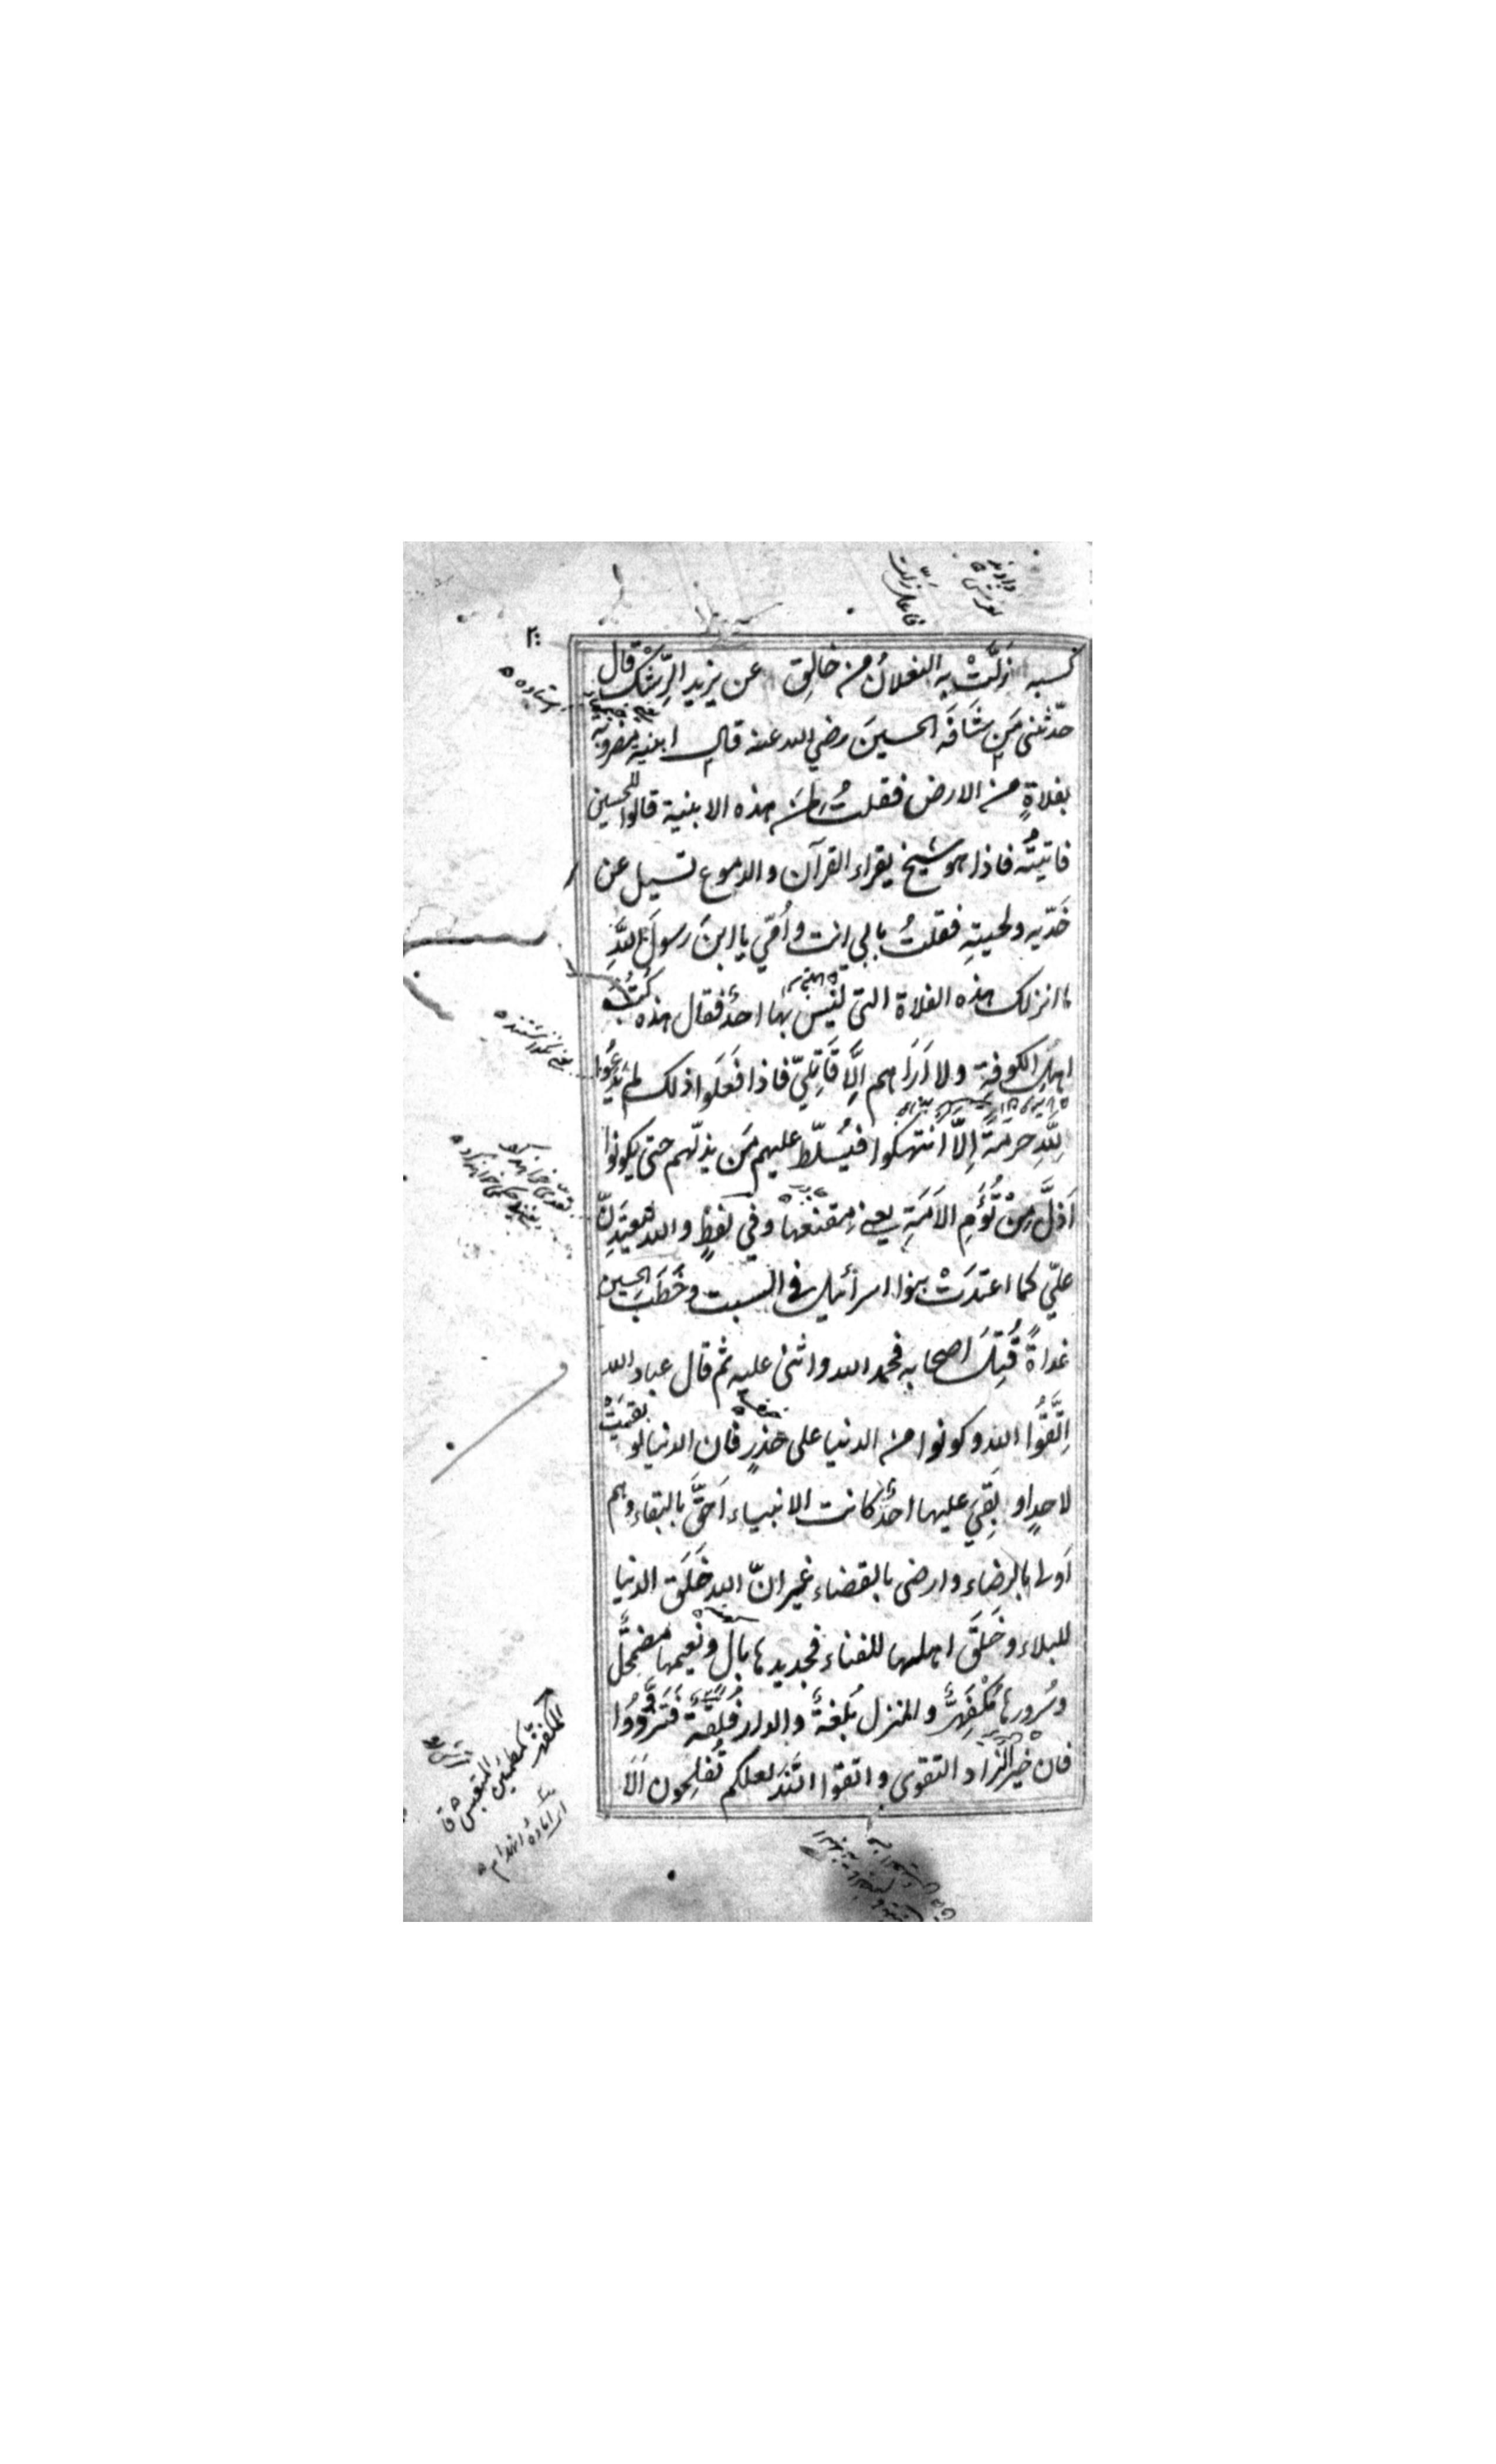 كسبه زَلَّتْ به النعلانُ من خالِقِ عن يزيد الرِّشْك قال
حدّثني مَن شَافَهَ الحسينَ رضي الله عنه قال ابنيةً مضروبة
بفلاةٍ من الارض فقلتُ لمن هذه الابنية قالوا للحسين
فاتيتُه فاذا هو شيخ يقراء القرآن والدموع تسيل عن
خَدّيه ولحيتِهِ فقلتُ بابي انت واُمّي يا ابنَ رسول اللهِ
ما انزلك هذه الفلاة التي لَيْسَ بها احدٌ فقال هذه كُتُبُ
اهل الكوفةِ ولا اَرَاهم اِلَّا قَاتِلِيّ فاذا فَعَلوا ذلك لم يَدَعُوا
لِلّهِ حرمَةً اِلَّا انتهكوا فيُسلّط عليهم مَن يذلّهم حتى يكونوا
اَذَلَّ مِنْ تُؤَمِ الاَمَةِ يعني مِقنعها وفي لفظٍ والله لَيَعتَدِنَّ
عليّ كما اعتدَتْ بنوا اسرائيل في السبت وخَطَبَ الحسين
غداةً قُتِلَ اصحابه فحمد الله واثنى عليه ثم قال عباد الله
اِتَّقُوا الله وكونوا من الدنيا على حذرٍ فان الدنيا لو بقيَتْ
لاحدٍ او بَقِيَ عليها احدٌ كانت الانبياء اَحَقَّ بالبقاء وهم
اَولى بالرضاء وارضى بالقضاء غير انّ الله خَلَقَ الدنيا
للبلاء وخَلَقَ اهلها للفناء فجديدها بالٍ ونعيمها مضمحلٌّ
وسُرورها مُكْفَهِرٌّ والمنزل بُلغةٌ والدار قُلعَةٌ فَتَزَوَّدُوا
فان خيرَ الزاد التقوى واتقوا اللهَ لعلكم تُفلِحون اَلاَ
فاعل زلّت
المكفهرّ كمطمئن المتعبس ق